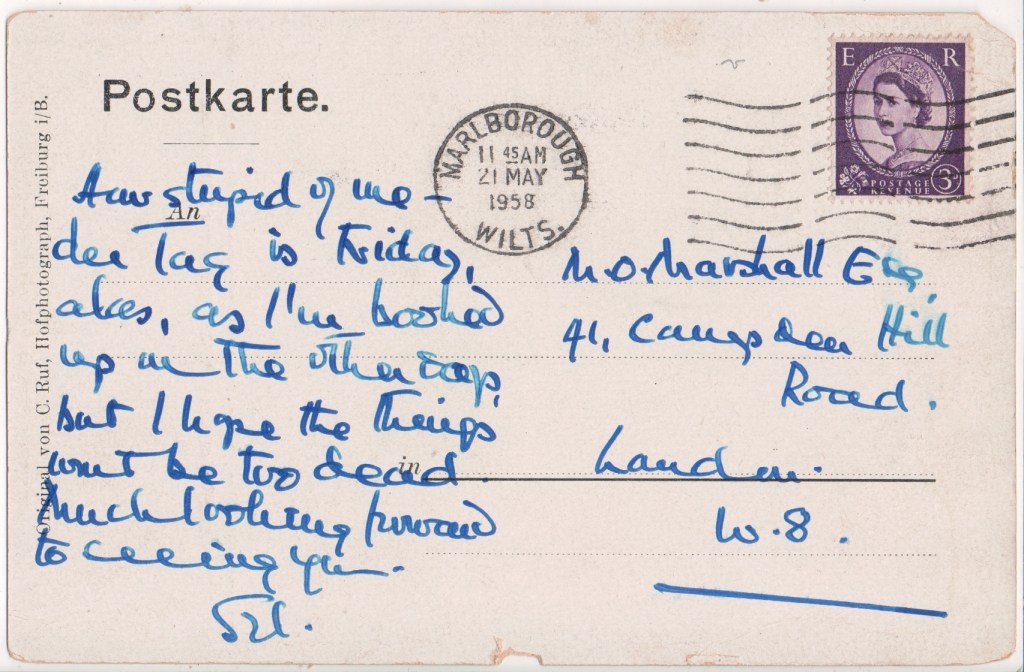 Postkarte.
MARLBOROUGH
11 45 AM
21 MAY
1958
WILTS.
E R
POSTAGE
REVENUE
3D
Original von C. Ruf, Hofphotograph, Freiburg i/B.
An
in
How stupid of me –
der Tag is Friday,
alas, as I'm booked
up on the other days,
but I hope the things
won't be too dead.
Much looking forward
to seeing you.
Marshall Esq,
41, Campden Hill
Road.
London.
W.8.